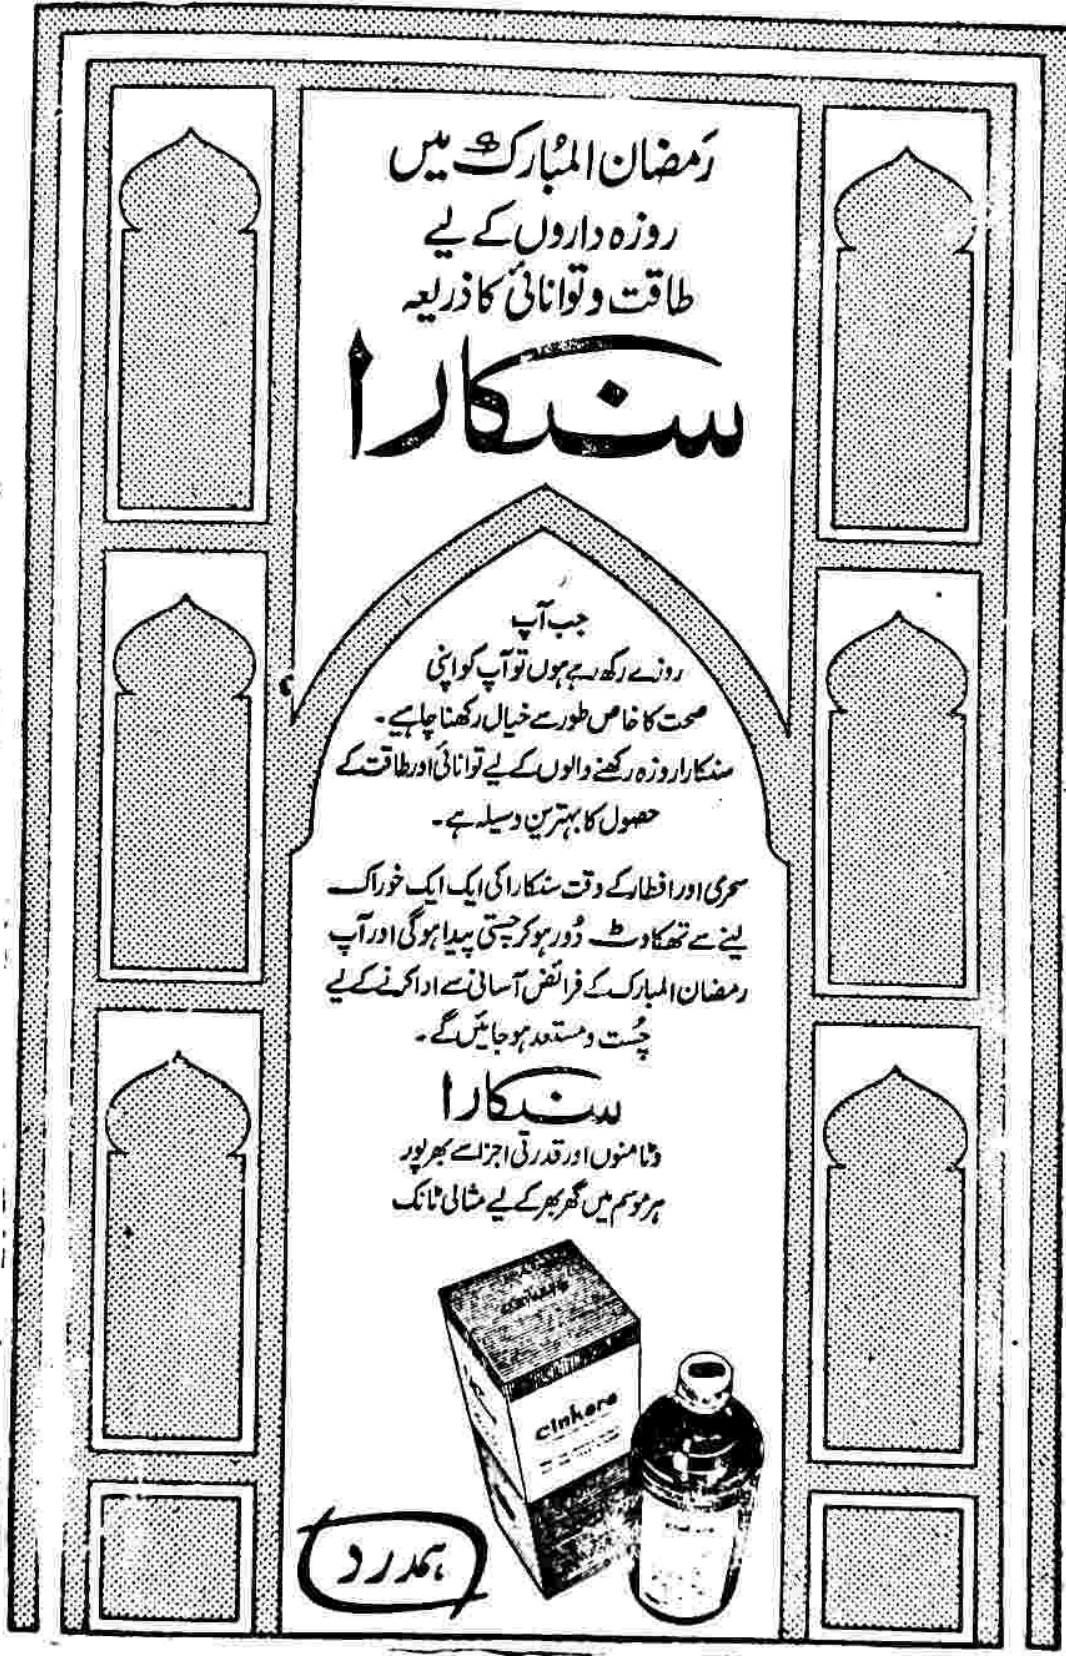 رَمضان المُبارک میں
روزہ داروں کے لیے
طاقت و توانائی کا ذریعہ
سنکارا
جب آپ
روزے رکھ رہے ہوں تو آپ کو اپنی
صحت کا خاص طور سے خیال رکھنا چاہیے۔
سنکارا روزہ رکھنے والوں کے لیے توانائی اور طاقت کے
حصول کا بہترین وسیلہ ہے۔
سحری اور افطار کے وقت سنکارا کی ایک ایک خوراک
لینے سے تھکاوٹ دُور ہو کر چستی پیدا ہوگی اور آپ
رمضان المبارک کے فرائض آسانی سے ادا کرنے کے لیے
چُست و مستعد ہو جائیں گے۔
سنکارا
وٹامنوں اور قدرتی اجزا سے بھرپور
ہر موسم میں گھر بھر کے لیے مثالی ٹانک
cinkara
Cinkara
ہمدرد